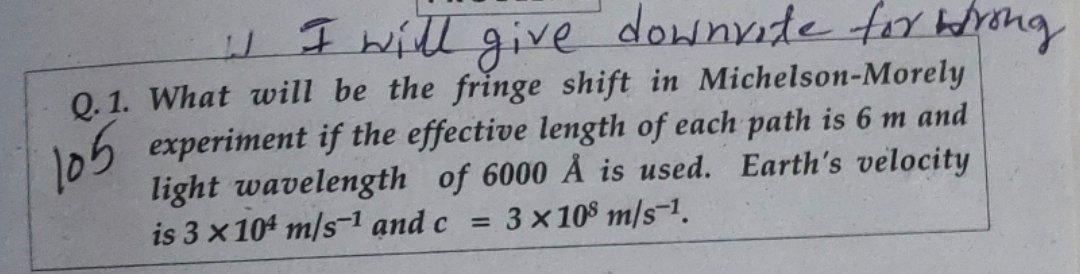 I will give downvote for wrong
Q. 1. What will be the fringe shift in Michelson-Morely
105 experiment if the effective length of each path is 6 m and
light wavelength of 6000 Å is used. Earth's velocity
is 3 × 10⁴ m/s⁻¹ and c = 3 × 10⁸ m/s⁻¹.